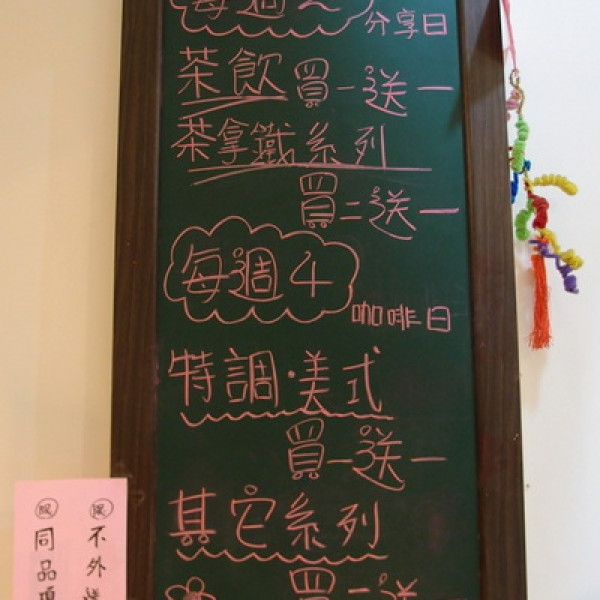 每週2
分享日
茶飲買一送一
茶拿鐵系列
買二送一
每週4
咖啡日
特調·美式
買一送一
其它系列
買二送一
限不外送
限同品項